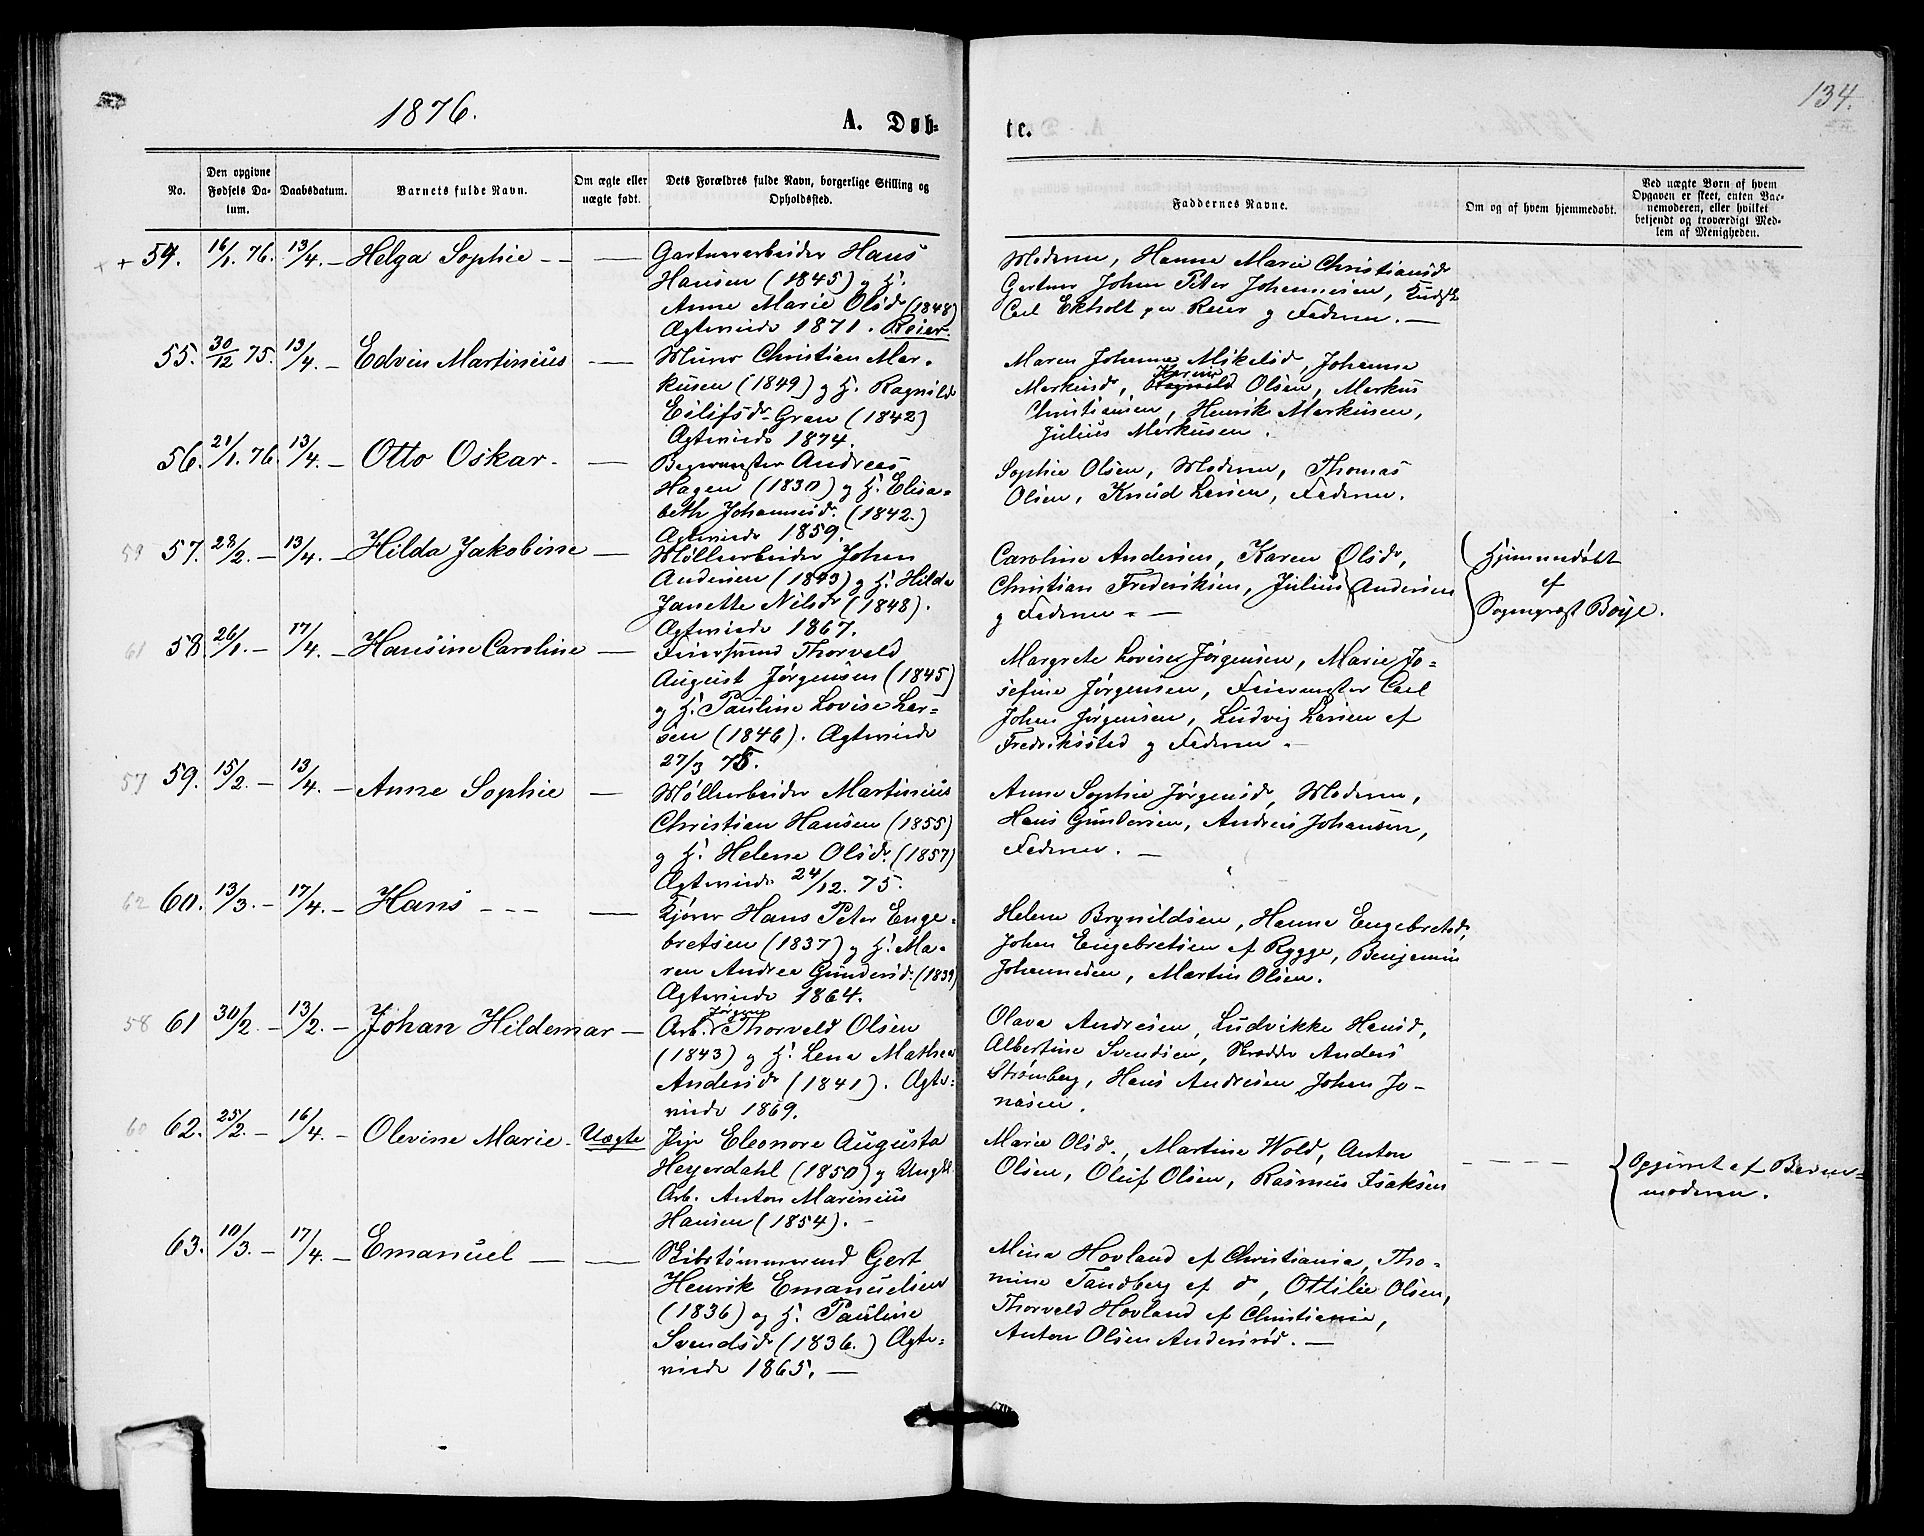 1876.
A. Døb-
te.
134.
No.
Den opgivne Fødsels Da-tum.
Daabsdatum.
Barnets fulde Navn.
Om ægte eller uægte født.
Dets Forældres fulde Navn, borgerlige Stilling og Opholdssted.
Faddernes Navne.
Om og af hvem hjemmedøbt.
Ved uægte Børn af hvem Opgaven er skeet, enten Bar-nemoderen, eller hvilket bekjendt og troværdigt Med-lem af Menigheden.
++ 54. 16/1. 76. 13/4. – Helga Sophie – – —
Gartnerarbeider Hans
Hansen (1845) og H.
Anne Marie Olsdr (1848)
Ægteviede 1871. Reier-
Moderen, Hanne Marie Christiansdr
Gartner Johan Peter Johannesen,
Carl Ekholt pr Reier og Faderen. —
55. 30/12 75. 13/4. – Edvin Martinius —
Murer Christian Mar-
kusen (1849) og H. Ragnild
Eilifsdr Gran (1842)
Ægteviede 1874.
Maren Johanne Mikelsd, Johanne
Markusd, Karine Ragnild Olsen, Markus
Christiansen, Henrik Markusen,
Julius Markusen.
56. 21/1. 76. 13/4. – Otto Oskar. —
Bagermester Andreas
Hagen (1830) og H. Elisa-
beth Johannesd. (1842.)
Ægteviede 1859.
Sophie Olsen, Moderen, Thomas
Olsen, Knud Larsen, Faderen.
59 57. 28/2. – 13/4. – Hilda Jakobine —
Møllearbeider Johan
Andersen (1843) og H. Hilda
Janette Nilsdr (1848).
Ægteviede 1867.
Caroline Andersen, Karen Olsdr,
Christian Frederiksen, Julius Andersen
og Faderen. —
Hjemmedøbt
af
Sogneprest Boye.
61 58. 26/1. – 17/4. – Hansine Caroline —
Feiersvend Thorvald
August Jørgensen (1845)
og H. Pauline Lovise Lar-
sen (1846). Ægteviede
27/3 75.
Margrete Lovise Jørgensen, Marie Jo-
sefine Jørgensen, Feiermester Carl
Johan Jørgensen, Ludvig Larsen af
Fredriksstad og Faderen. –
57 59. 15/2. – 13/4. – Anne Sophie —
Møllearbeider Martinius
Christian Hansen (1855)
og H. Helene Olsdr. (1857)
Ægteviede 24/12. 75.
Anne Sophie Jørgensd, Moderen,
Hans Gundersen, Andreas Johansen,
Faderen. —
62 60. 13/3. – 17/4. – Hans – – – —
Kjører Hans Peter Enge-
bretsen (1837) og H. Ma-
ren Andrea Gundersd. (1839)
Ægteviede 1864.
Helene Brynildsen, Hanne Engebretsd,
Johan Engebretsen af Rygge, Benjamin
Johannesen, Martin Olsen.
58 61 30/2. – 13/2. – Johan Hildemar —
Arb. Jørgen Thorvald Olsen
(1843) og H. Lena Mathea
Andersdr (1841). Ægte-
viede 1869.
Olava Andresen, Ludvikke Hansd,
Albertine Svendsen, Skrædder Anders
Strømberg, Hans Andresen Johan Jo-
nasen.
60 62. 25/2. – 16/4. – Olevine Marie – Uægte
Pige Eleonore Augusta
Heyerdahl (1850) og Ungk.
Arb. Anton Marinius
Hansen (1854). –
Marie Olsd., Martine Wold, Anton
Olsen, Oluf Olsen, Rasmus Isaksen
– – – –
Opgivet af Barne-
moderen.
63. 10/3. – 17/4. – Emanuel — —
Skibstømmermd Gert
Henrik Emanuelsen
(1836) og H. Pauline
Svendsdr (1836.) Ægte-
viede 1865. —
Mina Hovland af Christiania, Tho-
mine Tandberg af do, Ottilie Olsen,
Thorvald Hovland af Christiania,
Anton Olsen Andersrød. —